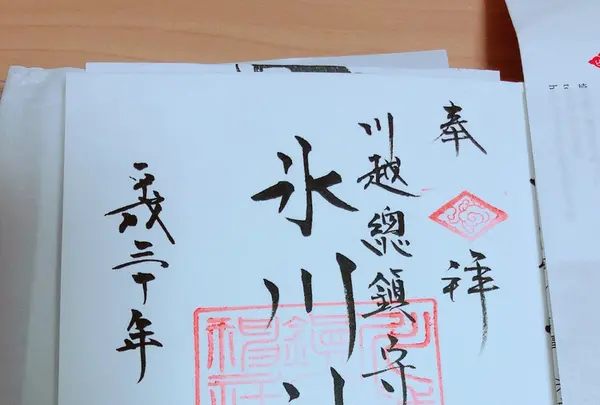 奉
祥
川越總鎮守
氷川
平成三十年